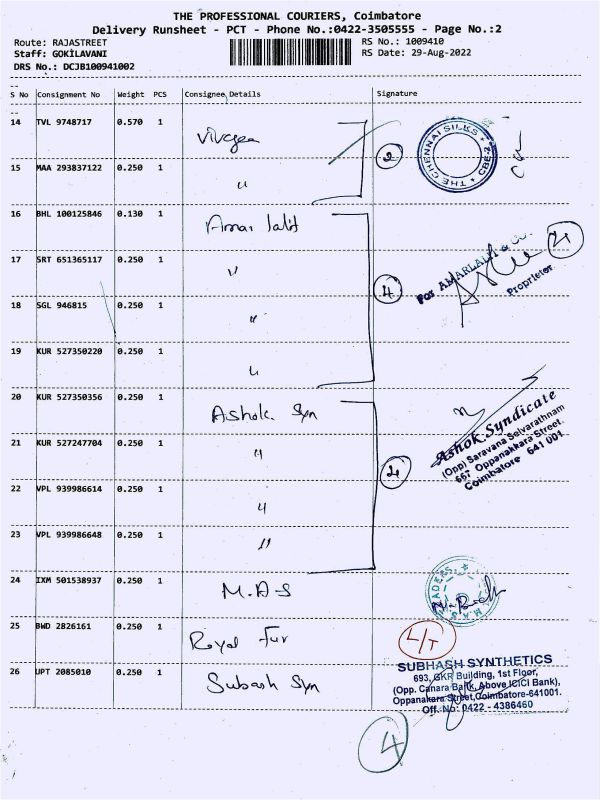 THE PROFESSIONAL COURIERS, Coimbatore
Delivery Runsheet - PCT - Phone No.:0422-3505555 - Page No.:2
Route: RAJASTREET RS No.: 1009410
Staff: GOKILAVANI RS Date: 29-Aug-2022
DRS No.: DCJB100941002
S No Consignment No Weight PCS Consignee Details Signature
14 TVL 9748717 0.570 1
2
THE CHENNAI SILKS * CBE-
15 MAA 293837122 0.250 1 "
16 BHL 100125846 0.130 1 Amar lalit
17 SRT 651365117 0.250 1 "
4
For AMARLALIT & Co.
Proprietor
18 SGL 946815 0.250 1 "
19 KUR 527350220 0.250 1 "
20 KUR 527350356 0.250 1 Ashok Syn
Ashok Syndicate
(Opp) Saravana Selvarathnam
657 Oppanakkara Street,
Coimbatore 641 001
21 KUR 527247704 0.250 1 "
4
22 VPL 939986614 0.250 1 "
23 VPL 939986648 0.250 1 "
24 IXM 501538937 0.250 1 M.A.S
25 BWD 2826161 0.250 1 Royal Fur
L/T
26 UPT 2085010 0.250 1 Subash Syn
SUBHASH SYNTHETICS
693, GKR Building, 1st Floor,
(Opp. Canara Bank, Above ICICI Bank),
Oppanakara Street, Coimbatore-641001.
Off. No: 0422 - 4386460
4